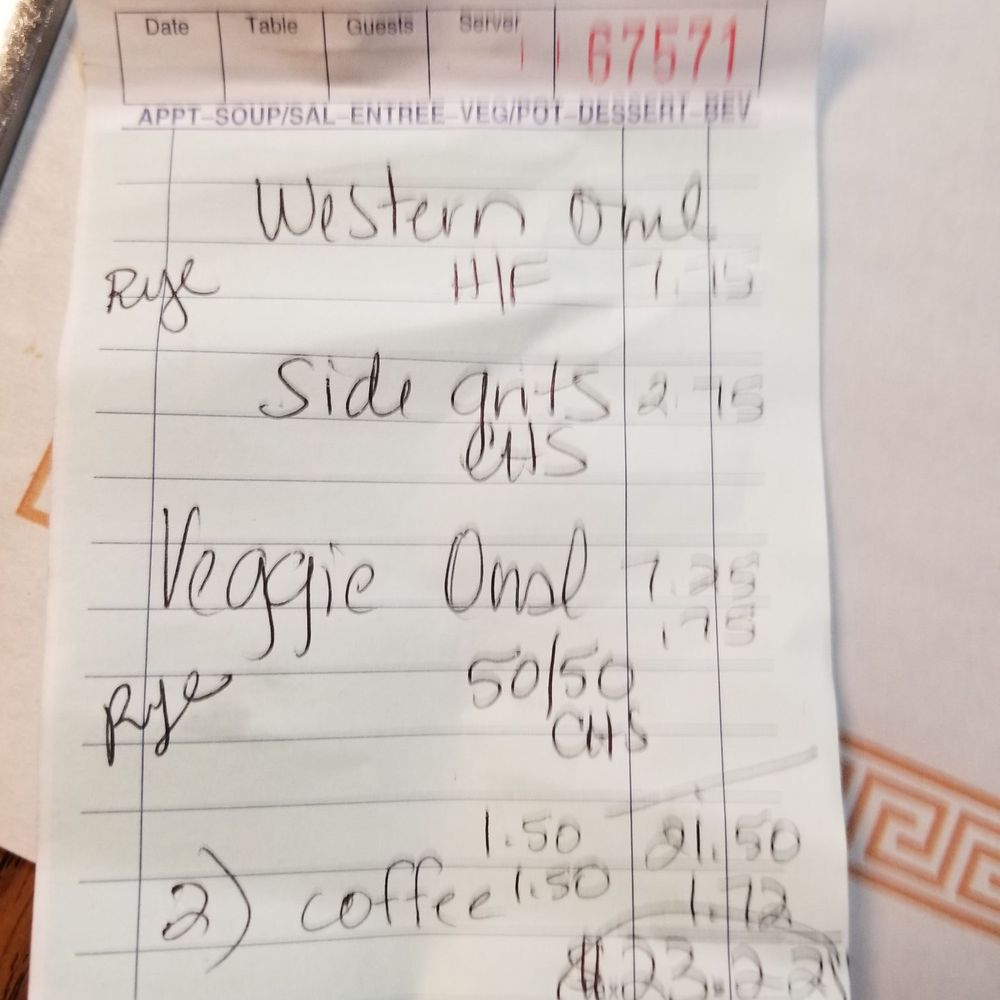 Date Table Guests Server 67571
APPT-SOUP/SAL-ENTREE-VEG/POT-DESSERT-BEV
Western Oml
Rye H/F 7.75
Side grits 2.75
CHS
Veggie Oml 7.25
.75
Rye 50/50
CHS
1.50 21.50
2) coffee 1.50 1.72
23.22